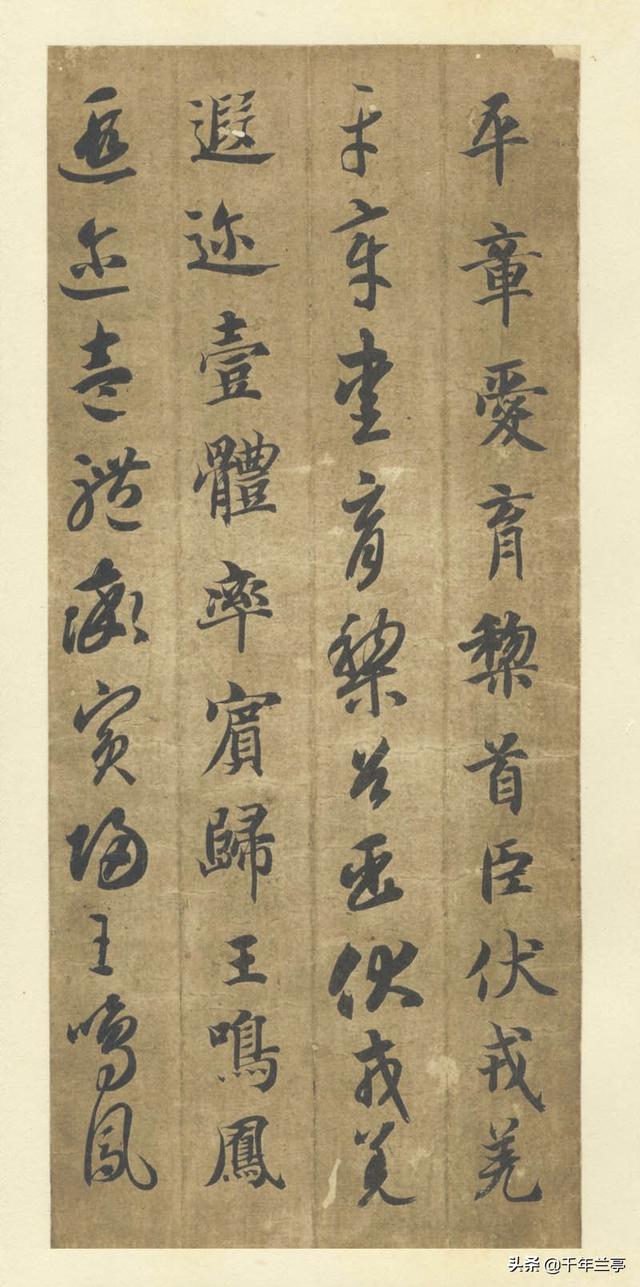 平章愛育黎首臣伏戎羌
平章愛育黎首臣伏戎羌
遐迩壹體率賓歸王鳴鳳
遐迩壹體率賓歸王鳴鳳
头条 @千年兰亭